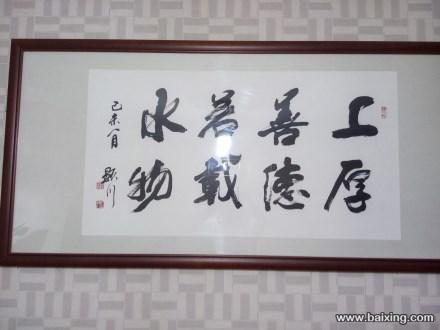 上善若水
厚德載物
己未
www.baixing.com